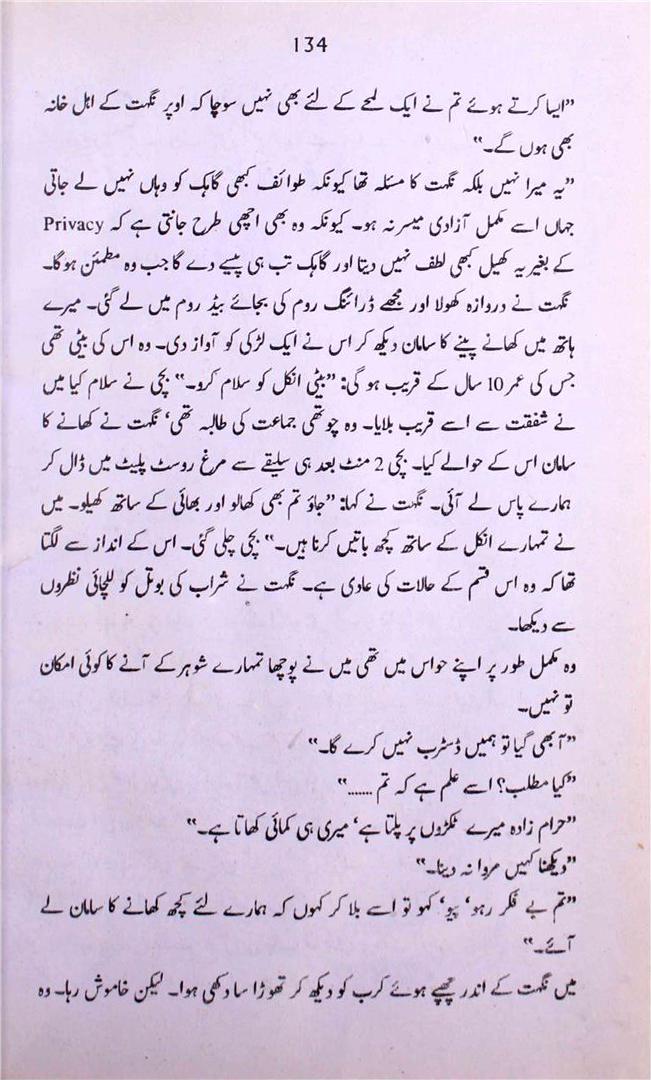 134
”ایسا کرتے ہوئے تم نے ایک لمحے کے لئے بھی نہیں سوچا کہ اوپر نگہت کے اہل خانہ
بھی ہوں گے۔“
”یہ میرا نہیں بلکہ نگہت کا مسئلہ تھا کیونکہ طوائف کبھی گاہک کو وہاں نہیں لے جاتی
جہاں اسے مکمل آزادی میسر نہ ہو۔ کیونکہ وہ بھی اچھی طرح جانتی ہے کہ Privacy
کے بغیر یہ کھیل کبھی لطف نہیں دیتا اور گاہک تب ہی پیسے دے گا جب وہ مطمئن ہو گا۔
نگہت نے دروازہ کھولا اور مجھے ڈرائنگ روم کی بجائے بیڈ روم میں لے گئی۔ میرے
ہاتھ میں کھانے پینے کا سامان دیکھ کر اس نے ایک لڑکی کو آواز دی۔ وہ اس کی بیٹی تھی
جس کی عمر 10 سال کے قریب ہو گی: ”بیٹی انکل کو سلام کرو۔“ بچی نے سلام کیا میں
نے شفقت سے اسے قریب بلایا۔ وہ چوتھی جماعت کی طالبہ تھی‘ نگہت نے کھانے کا
سامان اس کے حوالے کیا۔ بچی 2 منٹ بعد ہی سلیقے سے مرغ روسٹ پلیٹ میں ڈال کر
ہمارے پاس لے آئی۔ نگہت نے کہا: ”جاؤ تم بھی کھالو اور بھائی کے ساتھ کھیلو۔ میں
نے تمہارے انکل کے ساتھ کچھ باتیں کرنا ہیں۔“ بچی چلی گئی۔ اس کے انداز سے لگتا
تھا کہ وہ اس قسم کے حالات کی عادی ہے۔ نگہت نے شراب کی بوتل کو للچائی نظروں
سے دیکھا۔
وہ مکمل طور پر اپنے حواس میں تھی میں نے پوچھا تمہارے شوہر کے آنے کا کوئی امکان
تو نہیں۔
”آ بھی گیا تو ہمیں ڈسٹرب نہیں کرے گا۔“
”کیا مطلب؟ اسے علم ہے کہ تم ......“
”حرام زادہ میرے ٹکڑوں پر پلتا ہے‘ میری ہی کمائی کھاتا ہے۔“
”دیکھنا کہیں مروا نہ دینا۔“
”تم بے فکر رہو‘ پیو‘ کہو تو اسے بلا کر کہوں کہ ہمارے لئے کچھ کھانے کا سامان لے
آئے۔“
میں نگہت کے اندر چھپے ہوئے کرب کو دیکھ کر تھوڑا سا دکھی ہوا۔ لیکن خاموش رہا۔ وہ